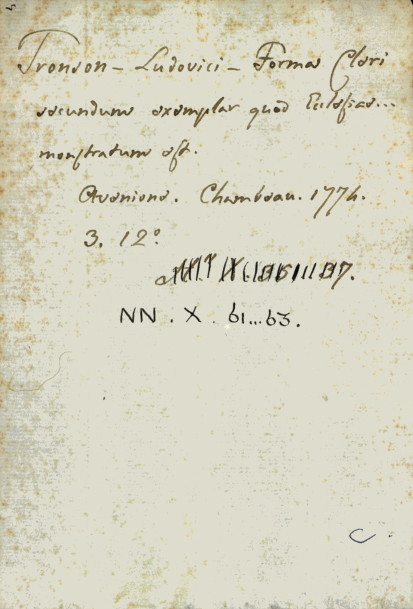 Tronson - Ludovici - Forma Cleri
secundum exemplar quod Eclesiae...
monstratum est.
Avenione. Chambeau. 1774.
3. 12º
NN. X. 61...63.
C